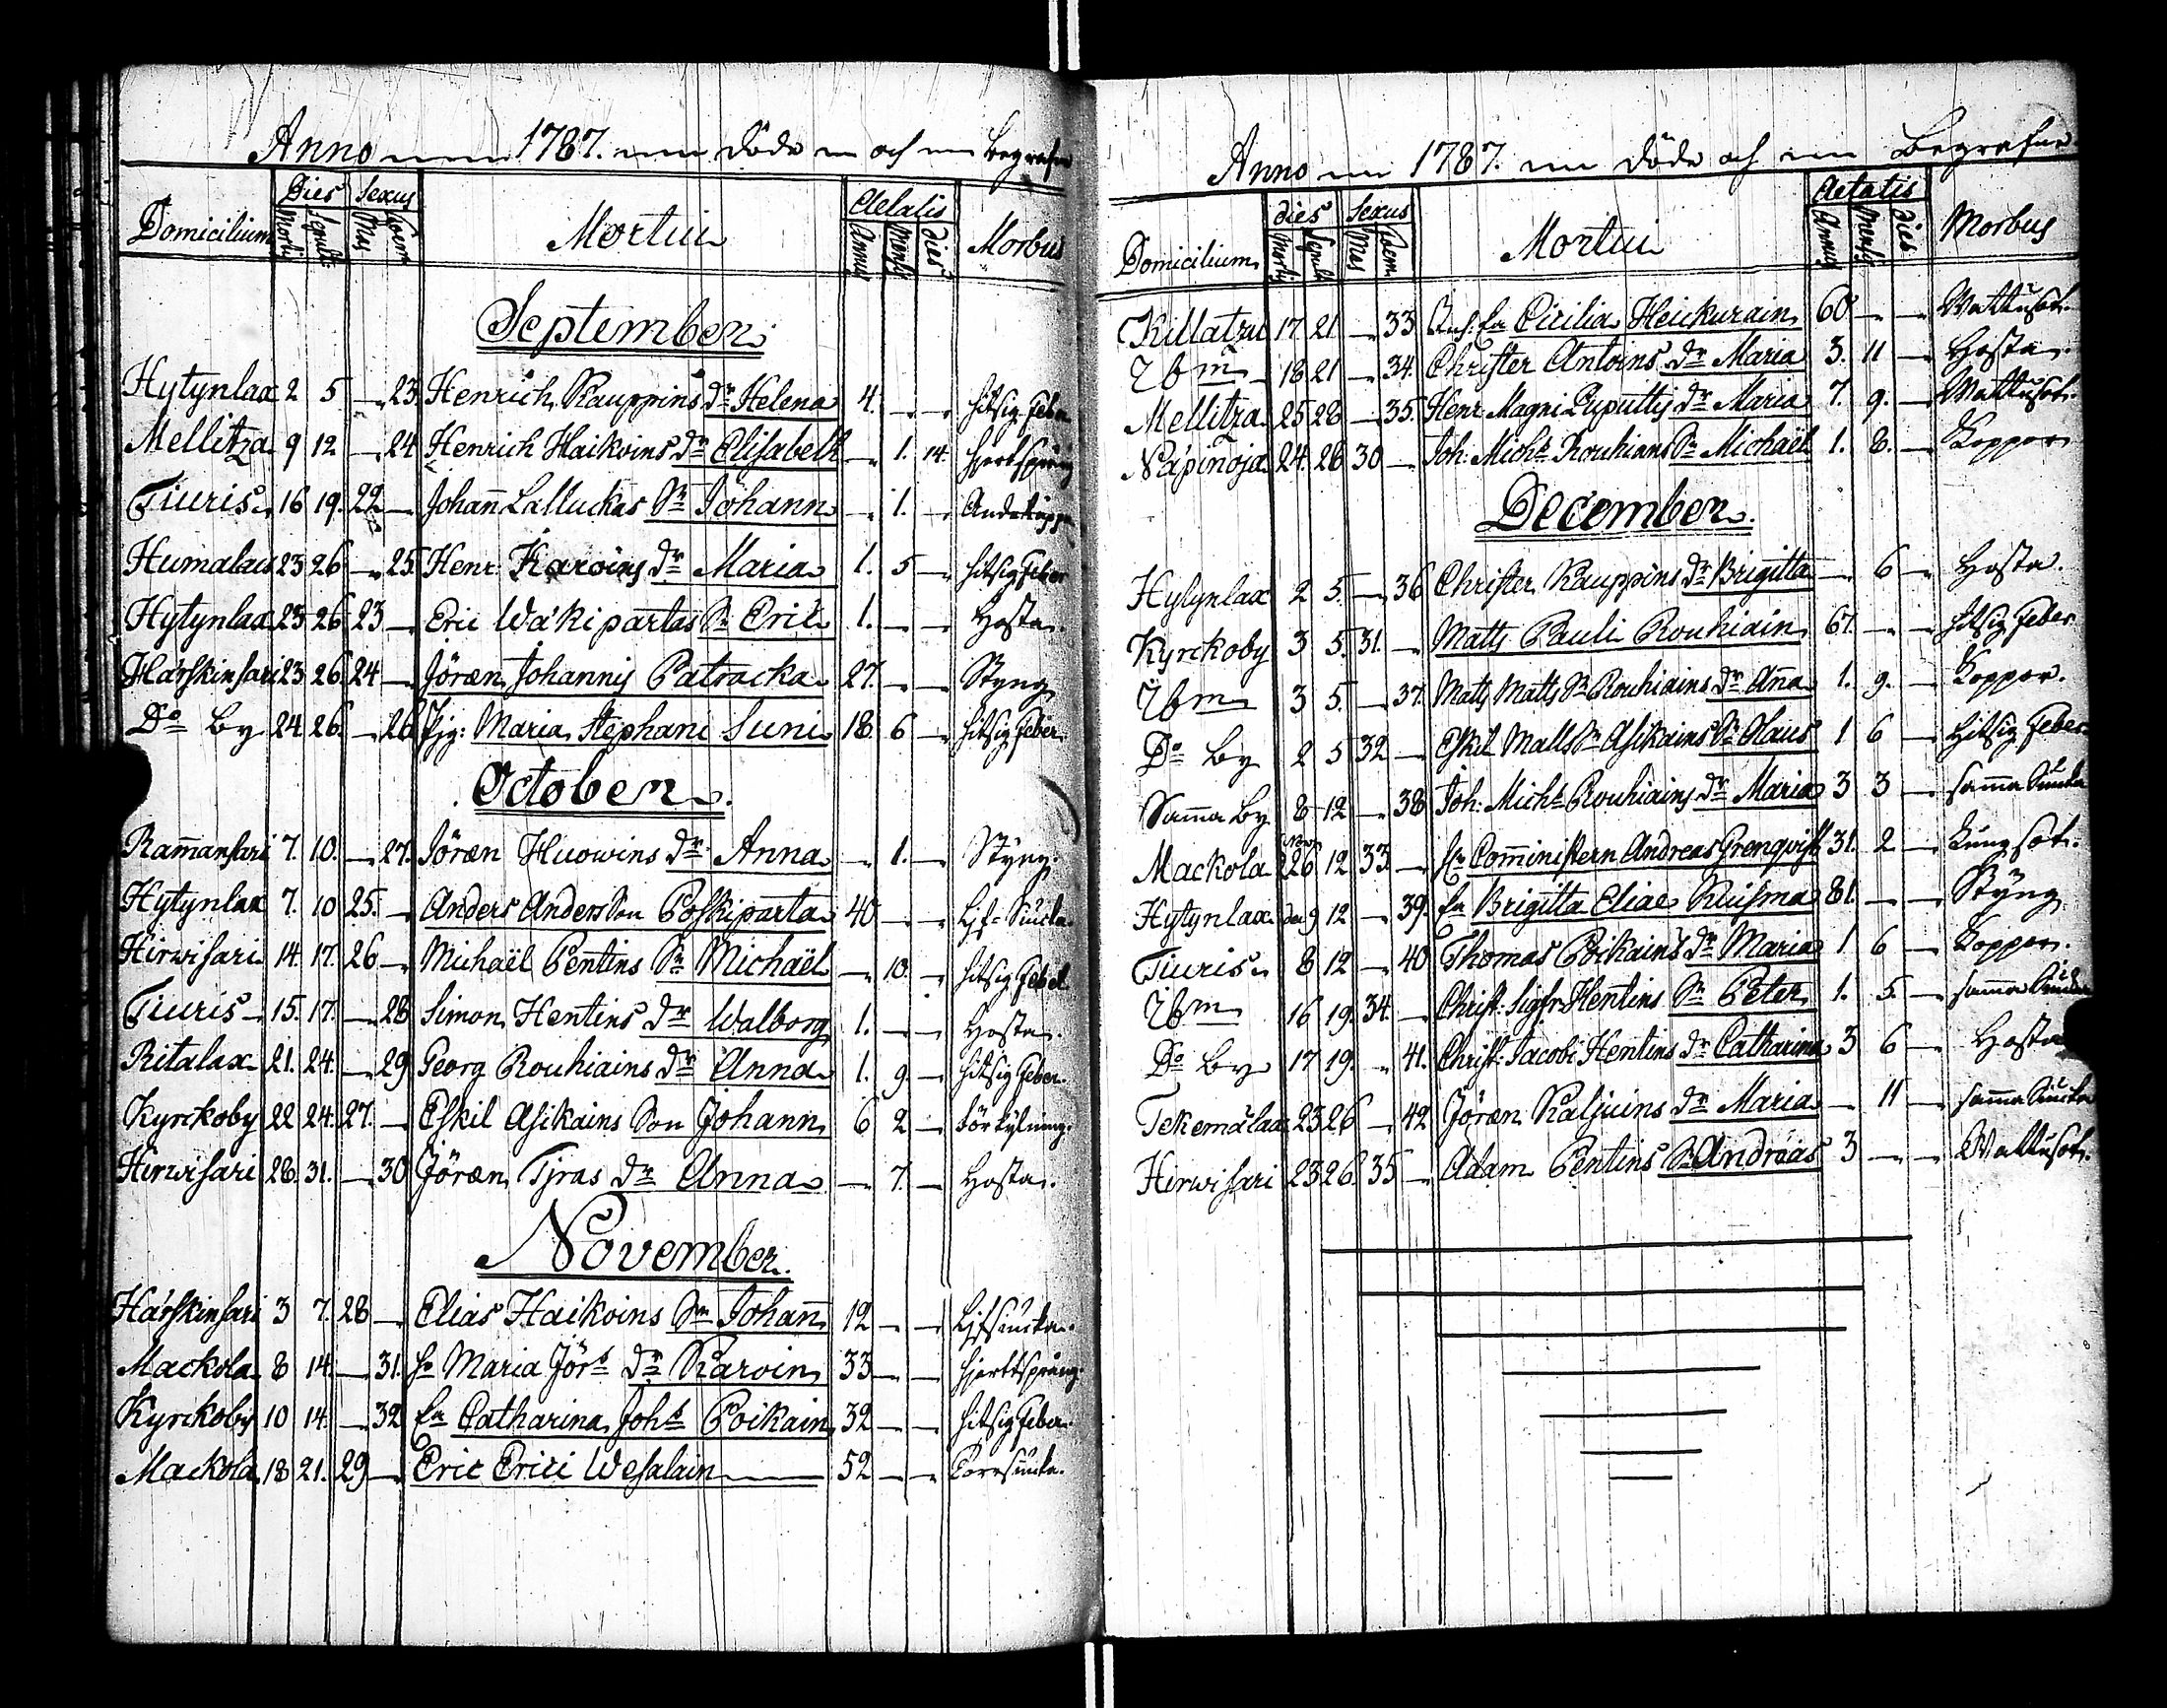 Anno 1787. Döde och Begrafne
Domicilium Dies Sexus Mortui Aetatis Morbus
Mortis Sepult: Mas Foem Annus Mensis dies
September.
Hytynlax 2 5 — 23. Henrich Kauppins dr Helena 4. — — hitsig feber
Mellitza 9 12 — 24 Henrich Haikoins dr Elisabeth — 1. 14. hjertspräng
Tiuris 16 19. 22. — Johan Lalluckas Sn Johann — 1. —
Humalais 23 26 — 25. Henr Karoins dr Maria 1. 5 — hitsig feber
Hytynlax 23 26 23 — Eric Wäkipartas Sn Eric 1. — — Hosta.
Härskinsari 23 26. 24 — Jören Johannis Patracka 27. — — Styng
Do By 24 26. — 26. Pjg: Maria Stephani Suni 18. 6 — hitsig feber.
October.
Ramansari 7. 10. — 27. Jören Huowins dr Anna — 1. — Styng.
Hytynlax 7. 10 25. — Anders Anders Son Poskiparta 40 — — Ljf-Siucka.
Hirwisari 14. 17. 26 — Michaël Pentins Sn Michaël — 10. — hitsig feber
Tiuris 15. 17. — 28 Simon Hentins dr Walborg 1. — — Hosta.
Ritalax 21. 24. — 29 Georg Rouhiains dr Anna 1. 9. — hitsig feber.
Kyrckoby 22 24. 27. — Eskil Asikains Son Johann 6 2 — förkylning.
Hirwisari 28. 31. — 30 Jören Tjras dr Anna — 7. — Hosta.
November.
Härskinsari 3 7. 28 — Elias Haikoins Sn Johan 12 — — Lifsiucka.
Mackola 8 14. — 31. Maria Jörs dr Karoin 33 — — hjerttspräng.
Kyrckoby 10 14. — 32 En Catharina Johs Poikain 32 — — hitsig feber.
Mackola 18 21. 29 — Eric Erici Wesalain 52 — — Torrsiucka.
Anno 1787. Döde och Begrafne
Domicilium dies Sexus Mortui Aetatis Morbus
Mortis Sepult Mas Foem Annus Mensis dies
Killatzu 17 21 — 33 Enk: En Cicilia Heickurain 60 — — Wattusot.
Ibm 18 21 — 34. Christer Antoins dr Maria 3. 11 — Hosta.
Mellitza 25 28 — 35. Henr Magni Puputtis dr Maria 7. 9. — Wattusot.
Näpinoja 24. 28 30 — Joh: Michs Rouhians Sn Michaël 1. 8. — Koppor
December.
Hytynlax 2 5. — 36 Christer Kauppins dr Brigitta — 6 — Hosta.
Kyrckoby 3 5. 31. — Matts Pauli Rouhiain 67. — — hitsig feber
Ibm 3 5. — 37. Matts Matts Sn Rouhiains dr Ana 1. 9. — Koppor.
Do By 2 5 32 — Eskil Matts Sn Asikains Sn Olaus 1 6 — hitsig feber
Sama By 8 12 — 38 Joh: Michs Rouhiains dr Maria 3 3 — sama Siucka
Mackola 26 12 33 — Hr Cominstern Andreas Grenqvist 31. 2 — Lungsot.
Hytynlax den 9 12 — 39. En Brigitta Eliae Ruisma 81. — — Styng
Tiuris 8 12 — 40 Thomas Poikains dr Maria 1 6 — Koppor.
Ibm 16 19. 34. — Christ: Sigfr Hentins Sn Peter 1. 5. — sama Siucka
Do By 17 19. — 41. Christ: Jacobi Hentins dr Catharina 3 6 — Hosta
Tekemälax 23 26 — 42 Jören Kaljuins dr Maria — 11 — sama Siucka
Hirwisari 23 26. 35 — Adam Pentins Sn Andreas 3 — — Wattusot.